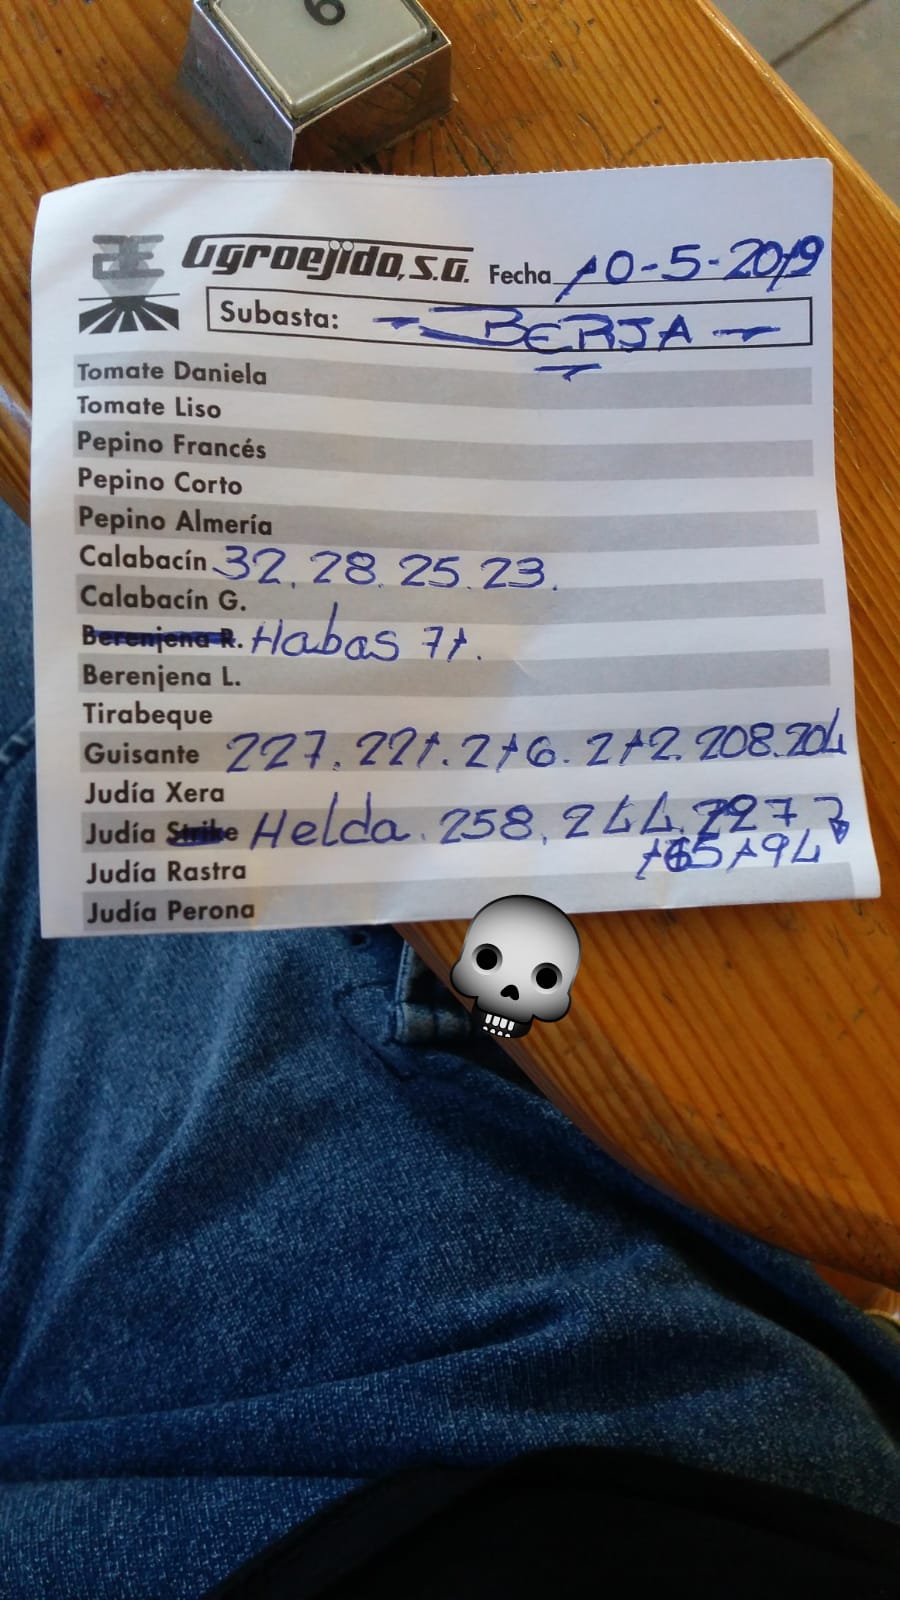 6
Agroejido, S.A. Fecha 10-5-2019
Subasta: BERJA
Tomate Daniela
Tomate Liso
Pepino Francés
Pepino Corto
Pepino Almería
Calabacín 32. 28. 25. 23.
Calabacín G.
Berenjena R. Habas 71.
Berenjena L.
Tirabeque
Guisante 227. 221. 216. 212. 208. 204
Judía Xera
Judía Strike Helda. 258. 244. 227
194
Judía Rastra
Judía Perona